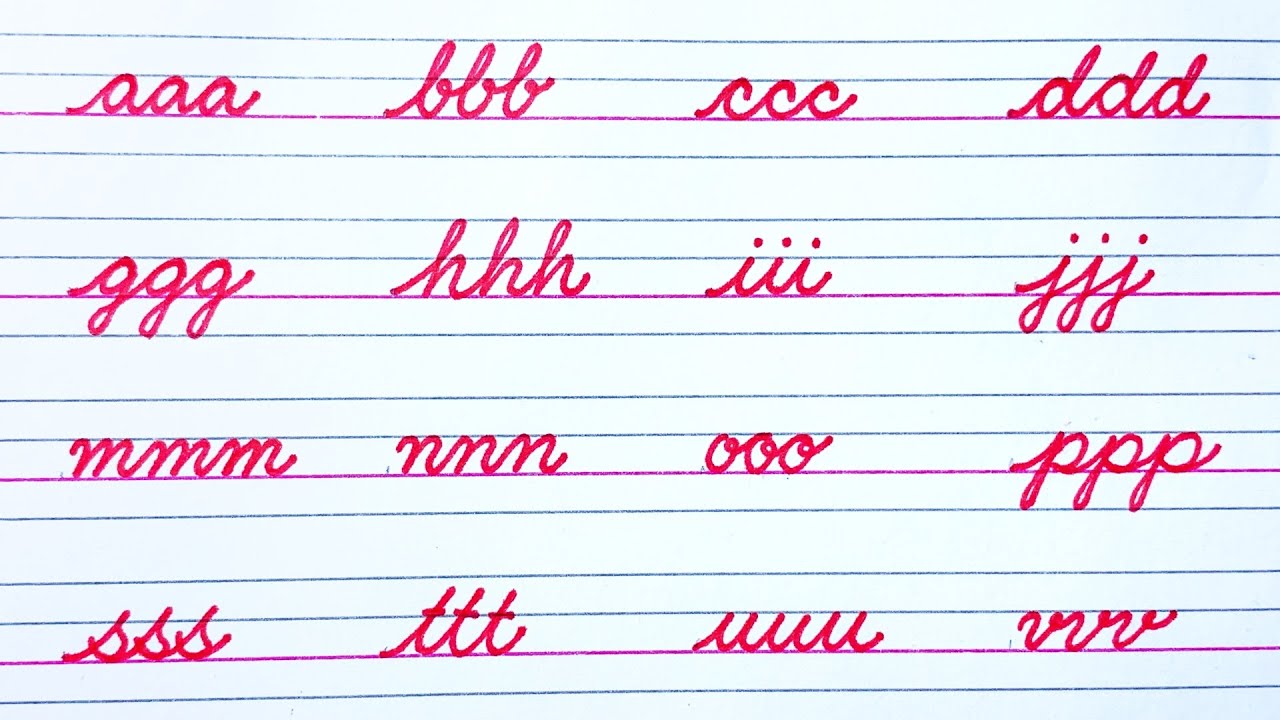 aaa bbb ccc ddd
ggg hhh iii jjj
mmm nnn ooo ppp
sss ttt uuu vvv